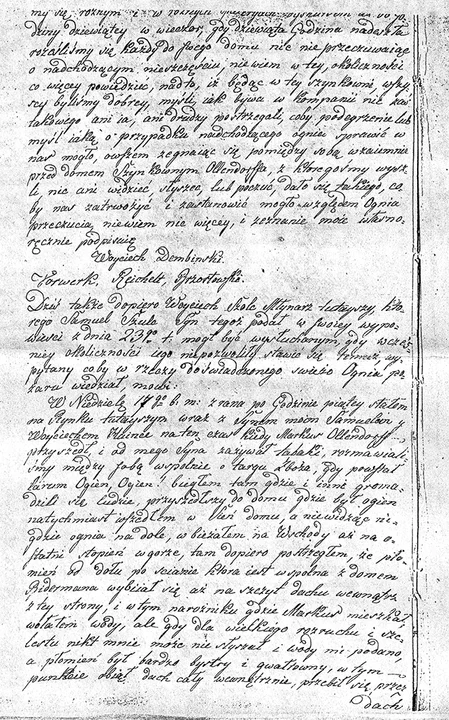 my się, rożnym i w rożnych
dziny dziewiątey w wieczor, gdy dziewiąta Godzina nadeszła
rozeszliśmy się każdy do swego domu nic nie przeczuwaiąc
o nadchodzącym nieszczęściu, nie wiem w tey okoliczności
co więcey powiedzieć, nadto, iż będąc w tey szynkowni, wszy-
scy byliśmy dobrey myśli, iak bywa w kompanii nic zaś
takowego ani ia, ani drudzy postrzegali, coby podeyrzenie lub
myśl iaką o przypadku nadchodzącego ognia sprawić w
nas mogło, owszem żegnaiąc się pomiędzy sobą wzaiemnie
przed domem Szynkownym Ollendorffa, z którego my wysz-
li nic ani widzieć słyszeć, lub poczuć dało się takiego, co
by nas zatrwożyć i zastanowić mogło względem Ognia
przeczucia, nie wiem nic więcey, i zeznanie moie własno-
ręcznie podpisuię
Woyciech Dembinski
Vorwerk. Reichelt, Brzostowski.
Dziś także dopiero Woyciech Szolc Młynarz tuteyszy, któ-
rego Samuel Szulc Syn tegoż podał w swoiey wypo-
wieści z dnia 23go t. mógł być wysłuchanym, gdy wcześ-
niey okoliczności iego nie pozwoliły stawić się termez, wy-
pytany coby w rzeczy doświadczonego swieżo Ognia po-
żaru wiedział, mowi:
W Niedzielę 17go b. m: z rana po Godzinie piątey stałem
na Rynku tuteyszym wraz z Synem moim Samuelem y
Woyciechem na ten czas kiedy Markus Ollendorff
przyszedł, i od mego Syna zażywał tabaki, rozmawiali-
śmy między sobą wspólnie o targu zboża, gdy powstał
larum Ogien, Ogien! biegłem tam gdzie i inne groma-
dzili się ludzie, przyszedłszy do domu gdzie był ogien
natychmiast wszedłem w Sień domu, a niewidząc ni-
gdzie ognia na dole, wbieżałem na Wschody aż na o-
statni stopień w gorze, tam dopiero postrzegłem, że pło-
mień od dołu po scianie która iest wspólna z domem
Bidermana wybiiał się aż na szczyt dachu wewnątrz
z tey strony, i w tym narożniku gdzie Markus mieszkał,
wołałem wody, ale gdy dla wielkiego rozruchu i sze-
lestu nikt mnie może nie słyszał i wody nie podano,
a płomień był bardzo bystry i gwałtowny, w tym
punkcie obiął dach cały wewnętrznie, przebił się przez
dach